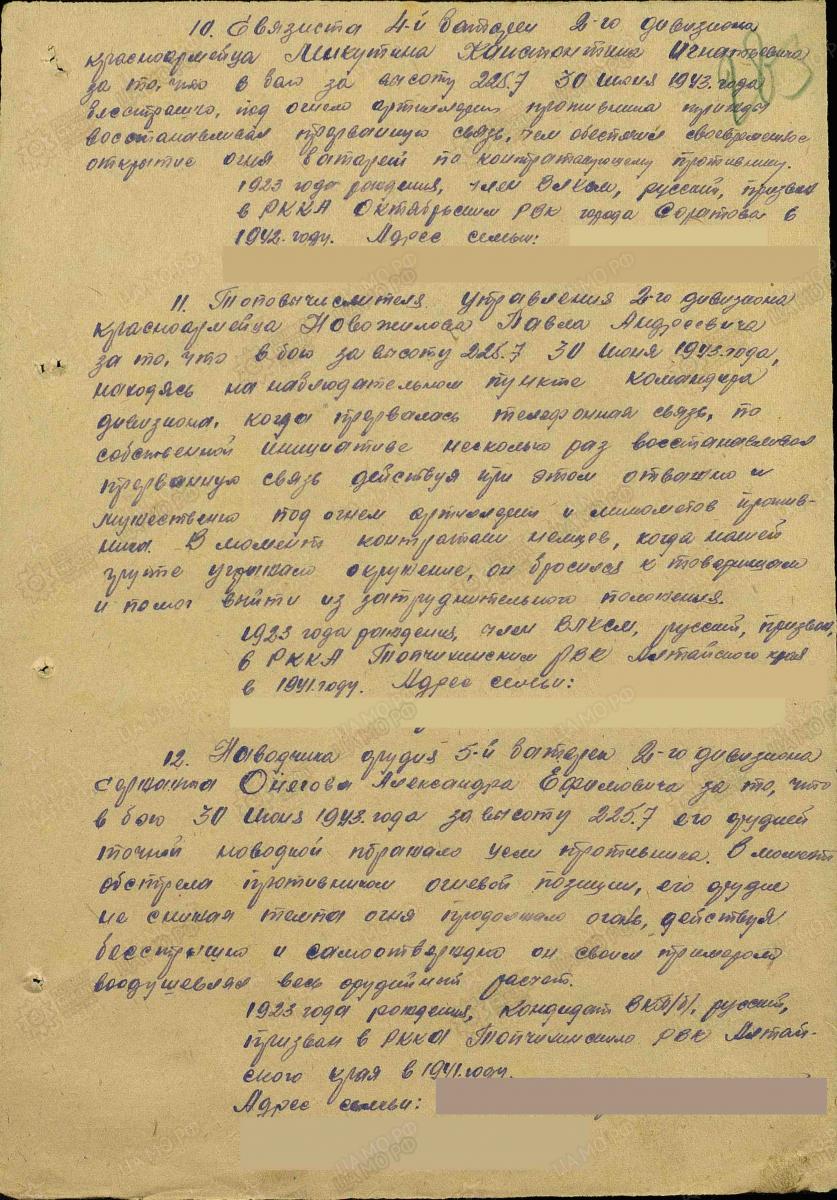 10. Связиста 4-й батареи 2-го дивизиона
красноармейца Микутина Константина Игнатьевича
за то, что в бою за высоту 225.7 30 июня 1943 года
бесстрашно, под огнем артиллерии противника трижды
восстанавливал прерванную связь, чем обеспечил своевременное
открытие огня батарей по контратакующему противнику.
1923 года рождения, член ВЛКСМ, русский, призван
в РККА Октябрьским РВК города Саратова в
1942 году. Адрес семьи:
11. Топовычислителя управления 2-го дивизиона
красноармейца Новожилова Павла Андреевича
за то, что в бою за высоту 225.7 30 июня 1943 года,
находясь на наблюдательном пункте командира
дивизиона, когда прервалась телефонная связь, по
собственной инициативе несколько раз восстанавливал
прерванную связь действуя при этом отважно и
мужественно под огнем артиллерии и минометов против-
ника. В момент контратаки немцев, когда нашей
группе угрожало окружение, он бросился к товарищам
и помог выйти из затруднительного положения.
1923 года рождения, член ВЛКСМ, русский, призван
в РККА Топчихинским РВК Алтайского края
в 1941 году. Адрес семьи:
12. Наводчика орудия 5-й батареи 2-го дивизиона
сержанта Онегова Александра Ефимовича за то, что
в бою 30 июня 1943 года за высоту 225.7 его орудие
точной наводкой поражало цели противника. В момент
обстрела противником огневой позиции, его орудие
не снижая темпа огня продолжало огонь, действуя
бесстрашно и самоотверждно он своим примером
воодушевлял весь орудийный расчет.
1923 года рождения, кандидат ВКП/б/, русский,
призван в РККА Топчихинским РВК Алтай-
ского края в 1941 году.
Адрес семьи: